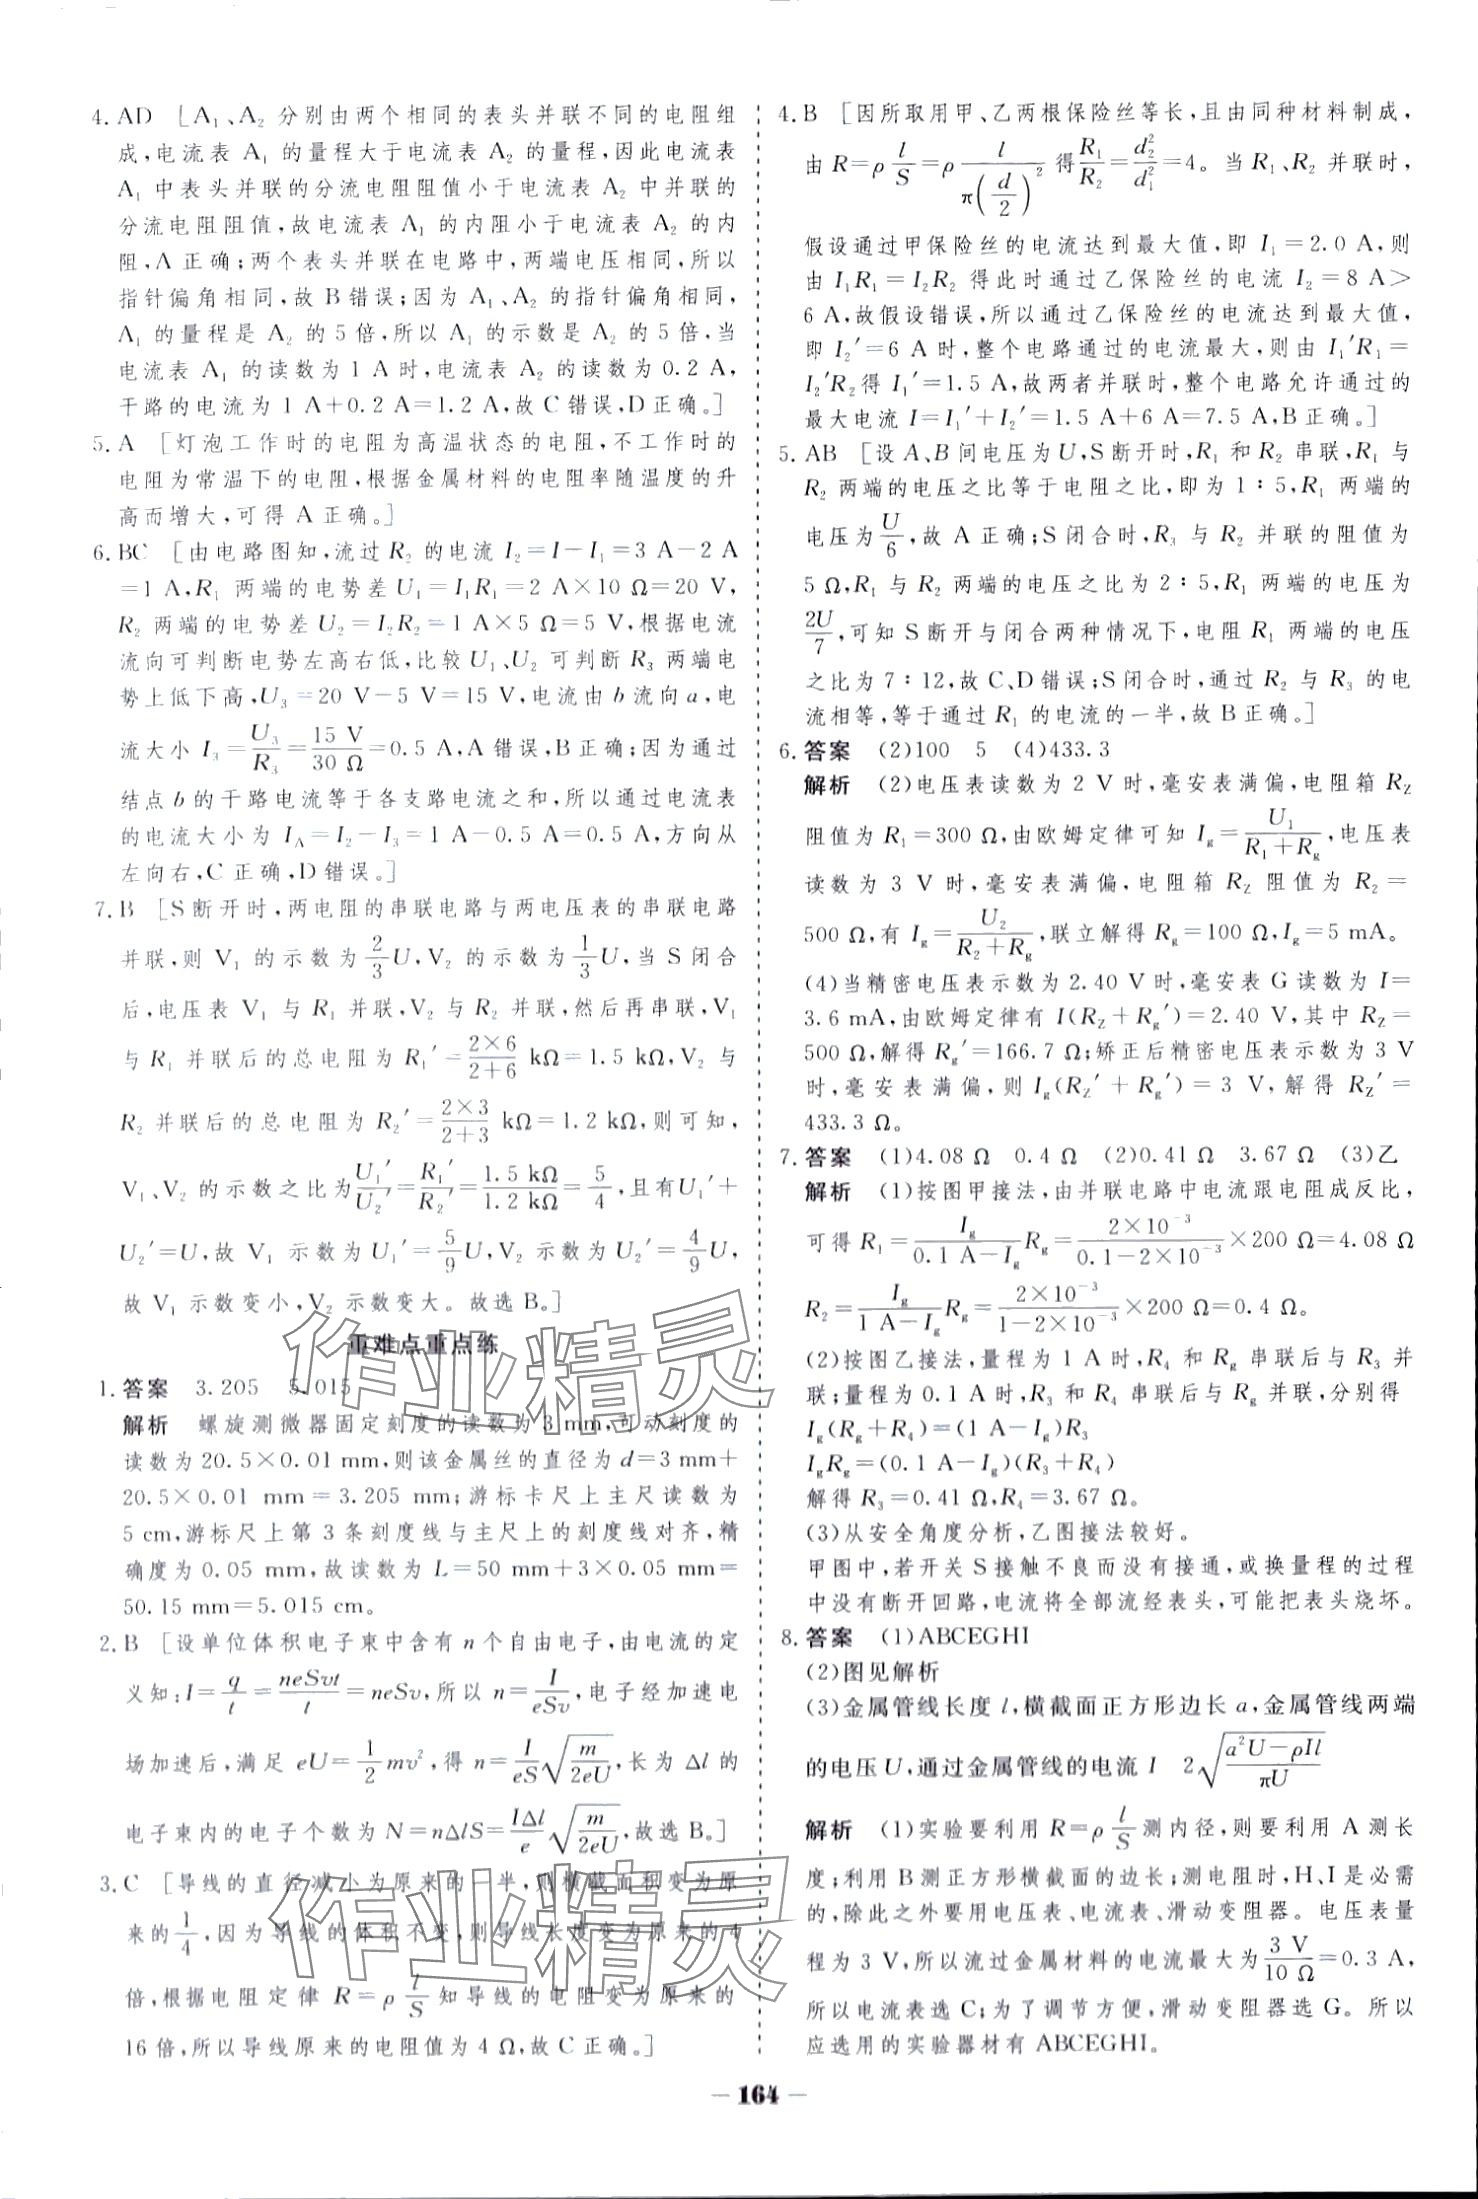 4. AD [A₁、A₂ 分别由两个相同的表头并联不同的电阻组
成,电流表 A₁ 的量程大于电流表 A₂ 的量程,因此电流表
A₁ 中表头并联的分流电阻阻值小于电流表 A₂ 中并联的
分流电阻阻值,故电流表 A₁ 的内阻小于电流表 A₂ 的内
阻,A 正确;两个表头并联在电路中,两端电压相同,所以
指针偏角相同,故 B 错误;因为 A₁、A₂ 的指针偏角相同,
A₁ 的量程是 A₂ 的 5 倍,所以 A₁ 的示数是 A₂ 的 5 倍,当
电流表 A₁ 的读数为 1 A 时,电流表 A₂ 的读数为 0.2 A,
干路的电流为 1 A+0.2 A=1.2 A,故 C 错误,D 正确。]
5. A [灯泡工作时的电阻为高温状态的电阻,不工作时的
电阻为常温下的电阻,根据金属材料的电阻率随温度的升
高而增大,可得 A 正确。]
6. BC [由电路图知,流过 R₂ 的电流 I₂=I−I₁=3 A−2 A
=1 A,R₁ 两端的电势差 U₁=I₁R₁=2 A×10 Ω=20 V,
R₂ 两端的电势差 U₂=I₂R₂=1 A×5 Ω=5 V,根据电流
流向可判断电势左高右低,比较 U₁、U₂ 可判断 R₃ 两端电
势上低下高,U₃=20 V−5 V=15 V,电流由 b 流向 a,电
流大小 I₃=U₃/R₃=15 V/30 Ω=0.5 A,A 错误,B 正确;因为通过
结点 b 的干路电流等于各支路电流之和,所以通过电流表
的电流大小为 I_A=I₂−I₃=1 A−0.5 A=0.5 A,方向从
左向右,C 正确,D 错误。]
7. B [S 断开时,两电阻的串联电路与两电压表的串联电路
并联,则 V₁ 的示数为 2/3 U,V₂ 的示数为 1/3 U,当 S 闭合
后,电压表 V₁ 与 R₁ 并联,V₂ 与 R₂ 并联,然后再串联,V₁
与 R₁ 并联后的总电阻为 R₁′=(2×6)/(2+6) kΩ=1.5 kΩ,V₂ 与
R₂ 并联后的总电阻为 R₂′=(2×3)/(2+3) kΩ=1.2 kΩ,则可知,
V₁、V₂ 的示数之比为 U₁′/U₂′=R₁′/R₂′=1.5 kΩ/1.2 kΩ=5/4,且有 U₁′+
U₂′=U,故 V₁ 示数为 U₁′=5/9 U,V₂ 示数为 U₂′=4/9 U,
故 V₁ 示数变小,V₂ 示数变大。故选 B。]
重难点重点练
1. 答案 3.205 5.015
解析 螺旋测微器固定刻度的读数为 3 mm,可动刻度的
读数为 20.5×0.01 mm,则该金属丝的直径为 d=3 mm+
20.5×0.01 mm=3.205 mm;游标卡尺上主尺读数为
5 cm,游标尺上第 3 条刻度线与主尺上的刻度线对齐,精
确度为 0.05 mm,故读数为 L=50 mm+3×0.05 mm=
50.15 mm=5.015 cm。
2. B [设单位体积电子束中含有 n 个自由电子,由电流的定
义知:I=q/t=neSvt/t=neSv,所以 n=I/(eSv),电子经加速电
场加速后,满足 eU=1/2 mv²,得 n=I/(eS) √(m/(2eU)),长为 Δl 的
电子束内的电子个数为 N=nΔlS=IΔl/e √(m/(2eU)),故选 B。]
3. C [导线的直径减小为原来的一半,则横截面积变为原
来的 1/4,因为导线的体积不变,则导线长度变为原来的 4
倍,根据电阻定律 R=ρ l/S 知导线的电阻变为原来的
16 倍,所以导线原来的电阻值为 4 Ω,故 C 正确。]
4. B [因所取用甲、乙两根保险丝等长,且由同种材料制成,
由 R=ρ l/S=ρ l/(π(d/2)²) 得 R₁/R₂=d₂²/d₁²=4。当 R₁、R₂ 并联时,
假设通过甲保险丝的电流达到最大值,即 I₁=2.0 A,则
由 I₁R₁=I₂R₂ 得此时通过乙保险丝的电流 I₂=8 A>
6 A,故假设错误,所以通过乙保险丝的电流达到最大值,
即 I₂′=6 A 时,整个电路通过的电流最大,则由 I₁′R₁=
I₂′R₂ 得 I₁′=1.5 A,故两者并联时,整个电路允许通过的
最大电流 I=I₁′+I₂′=1.5 A+6 A=7.5 A,B 正确。]
5. AB [设 A、B 间电压为 U,S 断开时,R₁ 和 R₂ 串联,R₁ 与
R₂ 两端的电压之比等于电阻之比,即为 1∶5,R₁ 两端的
电压为 U/6,故 A 正确;S 闭合时,R₃ 与 R₂ 并联的阻值为
5 Ω,R₁ 与 R₂ 两端的电压之比为 2∶5,R₁ 两端的电压为
2U/7,可知 S 断开与闭合两种情况下,电阻 R₁ 两端的电压
之比为 7∶12,故 C、D 错误;S 闭合时,通过 R₂ 与 R₃ 的电
流相等,等于通过 R₁ 的电流的一半,故 B 正确。]
6. 答案 (2)100 5 (4)433.3
解析 (2)电压表读数为 2 V 时,毫安表满偏,电阻箱 R_Z
阻值为 R₁=300 Ω,由欧姆定律可知 I_g=U₁/(R₁+R_g),电压表
读数为 3 V 时,毫安表满偏,电阻箱 R_Z 阻值为 R₂=
500 Ω,有 I_g=U₂/(R₂+R_g),联立解得 R_g=100 Ω,I_g=5 mA。
(4)当精密电压表示数为 2.40 V 时,毫安表 G 读数为 I=
3.6 mA,由欧姆定律有 I(R_Z+R_g′)=2.40 V,其中 R_Z=
500 Ω,解得 R_g′=166.7 Ω;矫正后精密电压表示数为 3 V
时,毫安表满偏,则 I_g(R_Z′+R_g′)=3 V,解得 R_Z′=
433.3 Ω。
7. 答案 (1)4.08 Ω 0.4 Ω (2)0.41 Ω 3.67 Ω (3)乙
解析 (1)按图甲接法,由并联电路中电流跟电阻成反比,
可得 R₁=I_g/(0.1 A−I_g) R_g=(2×10⁻³)/(0.1−2×10⁻³)×200 Ω=4.08 Ω
R₂=I_g/(1 A−I_g) R_g=(2×10⁻³)/(1−2×10⁻³)×200 Ω=0.4 Ω。
(2)按图乙接法,量程为 1 A 时,R₄ 和 R_g 串联后与 R₃ 并
联;量程为 0.1 A 时,R₃ 和 R₄ 串联后与 R_g 并联,分别得
I_g(R_g+R₄)=(1 A−I_g)R₃
I_gR_g=(0.1 A−I_g)(R₃+R₄)
解得 R₃=0.41 Ω,R₄=3.67 Ω。
(3)从安全角度分析,乙图接法较好。
甲图中,若开关 S 接触不良而没有接通,或换量程的过程
中没有断开回路,电流将全部流经表头,可能把表头烧坏。
8. 答案 (1)ABCEGHI
(2)图见解析
(3)金属管线长度 l,横截面正方形边长 a,金属管线两端
的电压 U,通过金属管线的电流 I 2√((a²U−ρIl)/(πU))
解析 (1)实验要利用 R=ρ l/S 测内径,则要利用 A 测长
度;利用 B 测正方形横截面的边长;测电阻时,H、I 是必需
的,除此之外要用电压表、电流表、滑动变阻器。电压表量
程为 3 V,所以流过金属材料的电流最大为 3 V/10 Ω=0.3 A,
所以电流表选 C;为了调节方便,滑动变阻器选 G。所以
应选用的实验器材有 ABCEGHI。
— 164 —
作业精灵
作业精灵